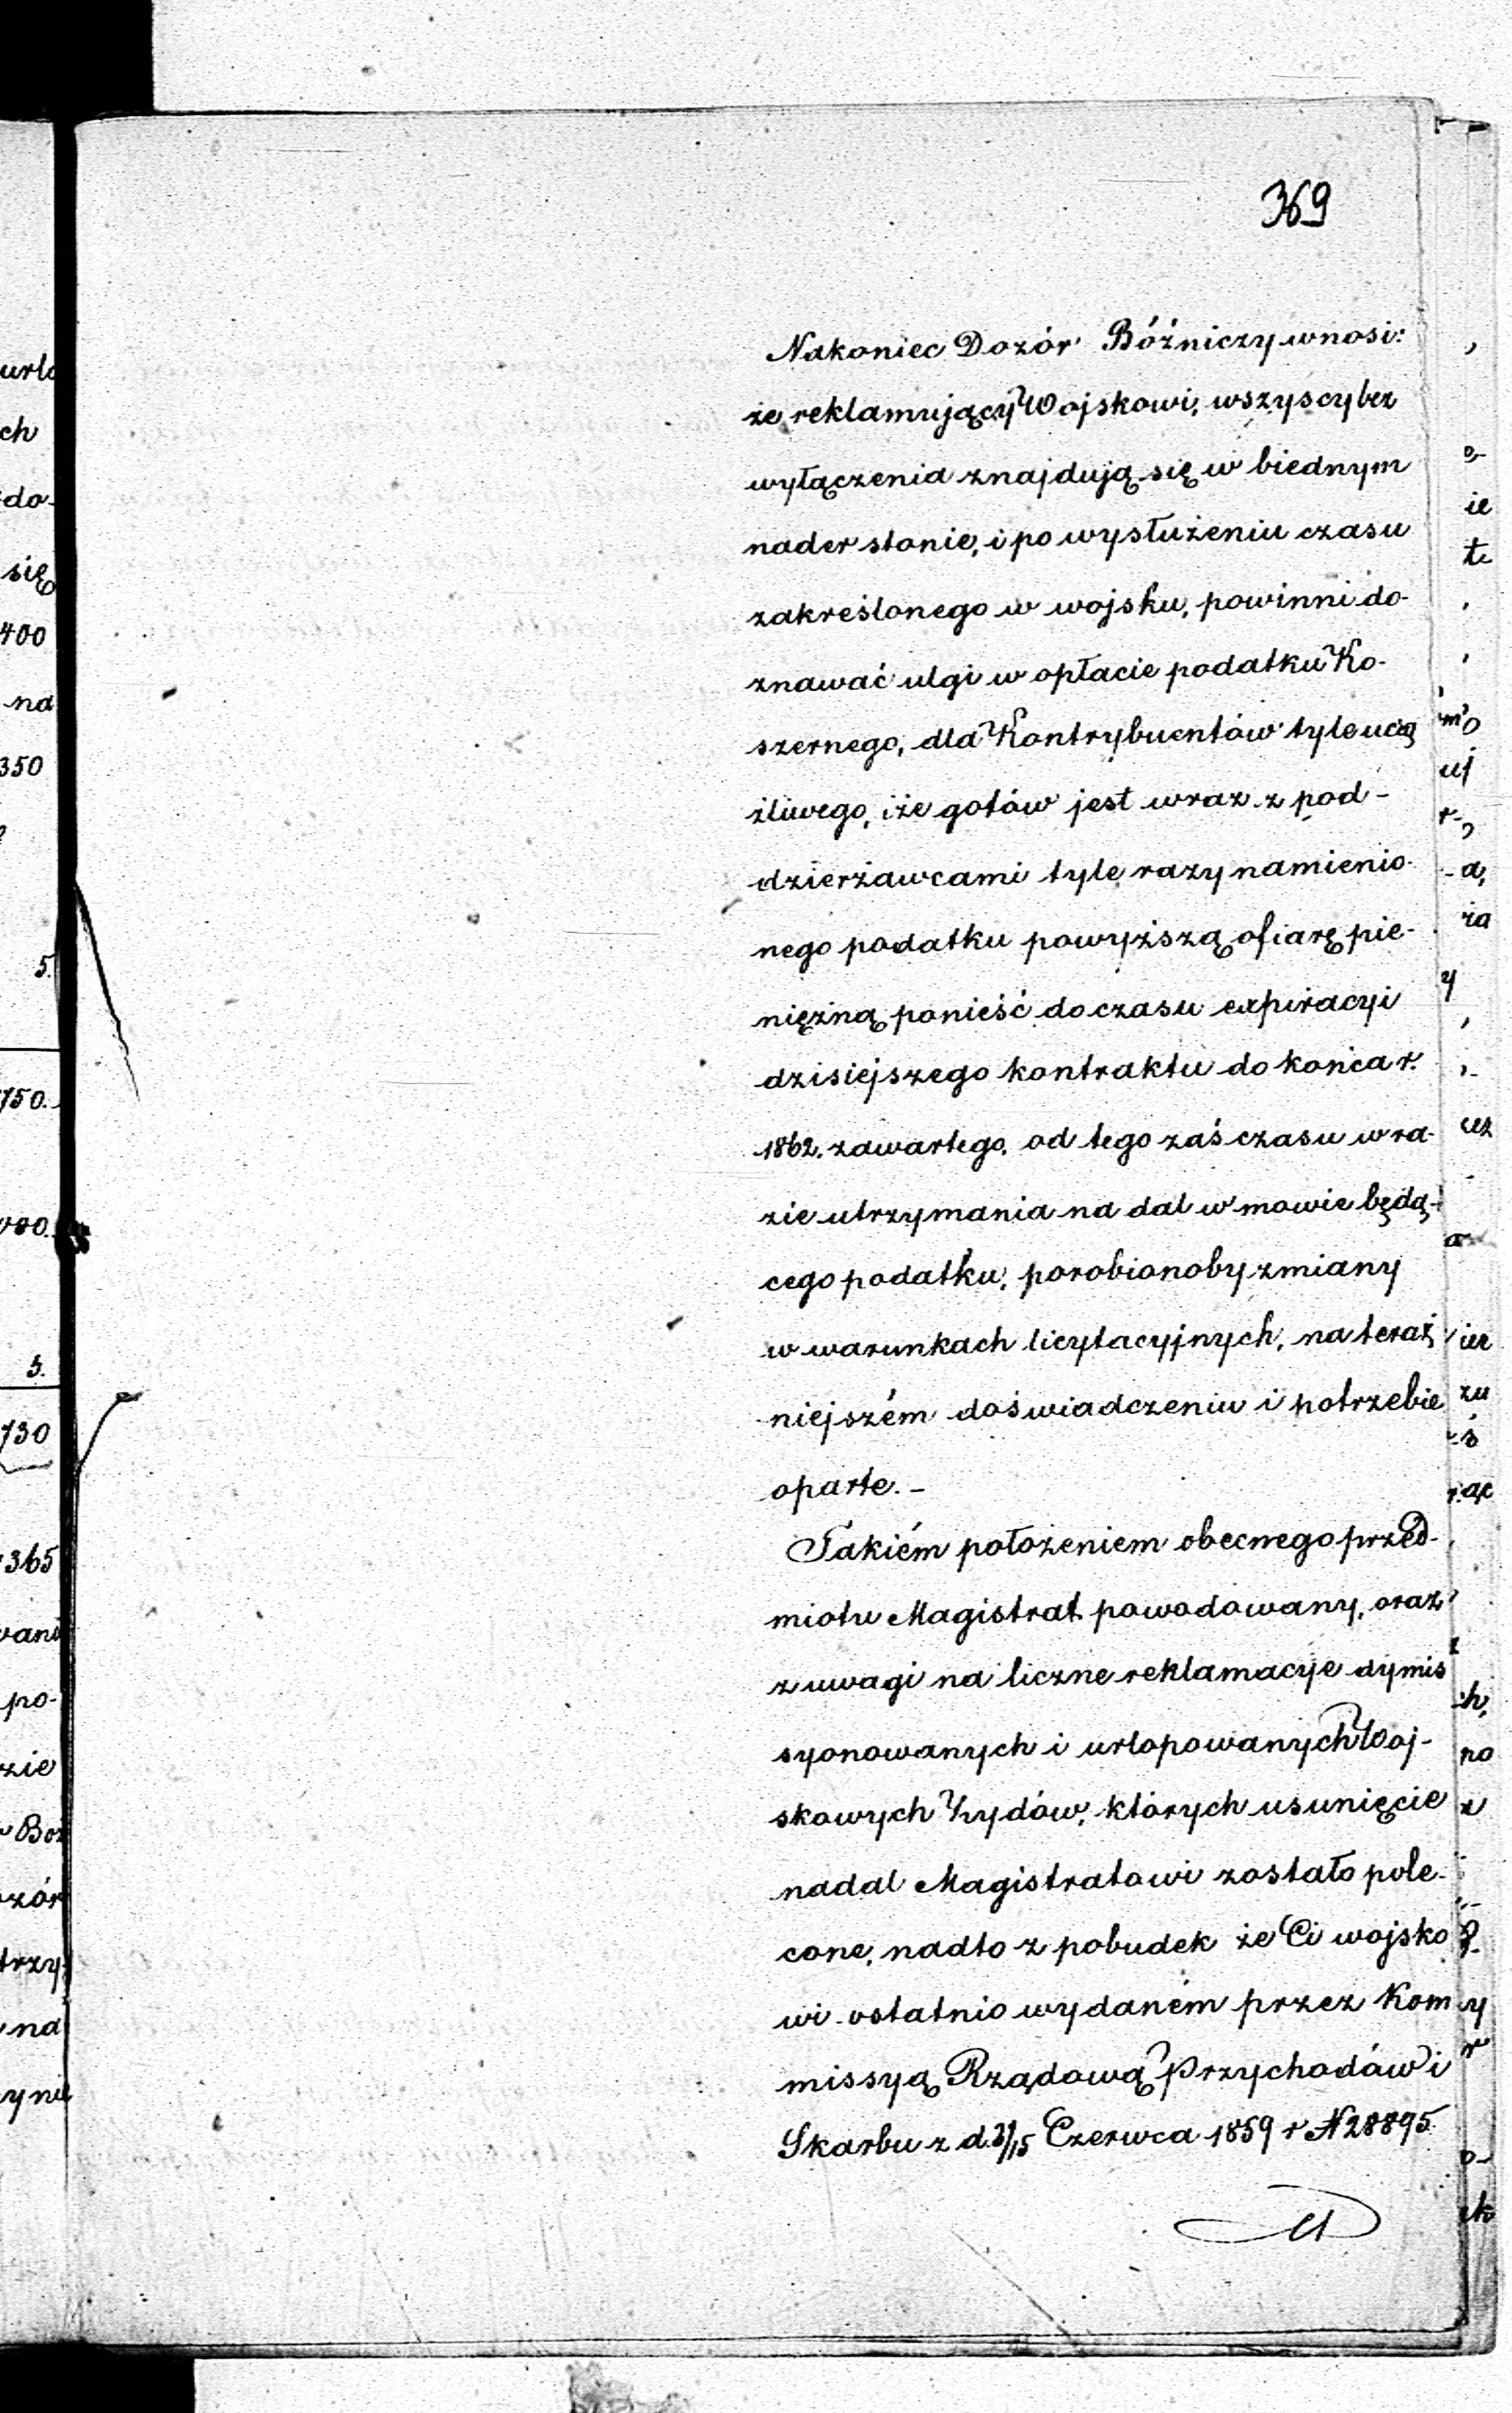 369
Nakoniec Dozór Bóźniczy wnosi:
że reklamujący Wojskowi, wszyscy bez
wyłączenia znajdują się w biednym
nader stanie, i po wysłużeniu czasu
zakreślonego w wojsku, powinni do-
znawać ulgi w opłacie podatku Ko-
szernego, dla Kontrybuentów tyle ucią
żliwego, iże gotów jest wraz z pod-
dzierżawcami tyle razy namienio-
nego podatku powyższą ofiarę pie-
niężną ponieść do czasu expiracyi
dzisiejszego kontraktu do końca r.
1862. zawartego, od tego zaś czasu w ra-
zie utrzymania na dal w mowie będą-
cego podatku, porobionoby zmiany
w warunkach licytacyjnych, na teraź
niejszém doświadczeniu i potrzebie
oparte. -
Takiém położeniem obecnego przed-
miotu Magistrat powodowany, oraz
z uwagi na liczne reklamacye dymis
syonowanych i urlopowanych Woj-
skowych Żydów, których usunięcie
nadal Magistratowi zostało pole-
cone, nadto z pobudek że Ci wojsko
wi ostatnio wydaném przez Kom
missyą Rządową Przychodów i
Skarbu z d. 3/15 Czerwca 1859 r N 28895